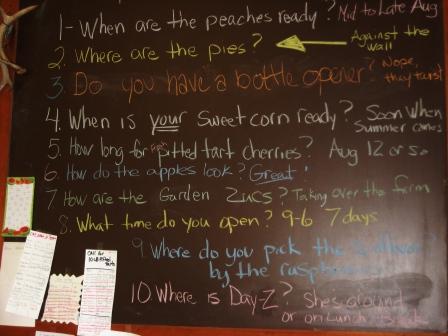 1- When are the peaches ready? Mid to Late Aug
2. Where are the pies? Against the wall
3. Do you have a bottle opener? Nope, they twist
4. When is your sweet corn ready? Soon When Summer comes
5. How long for Fresh pitted tart cherries? Aug 12 or so
6. How do the apples look? Great!
7 How are the Garden Zucs? Taking over the farm
8. What time do you open? 9-6 7 days
9. Where do you pick the
by the
10. Where is Day-Z? She's around
or on Lunch Break